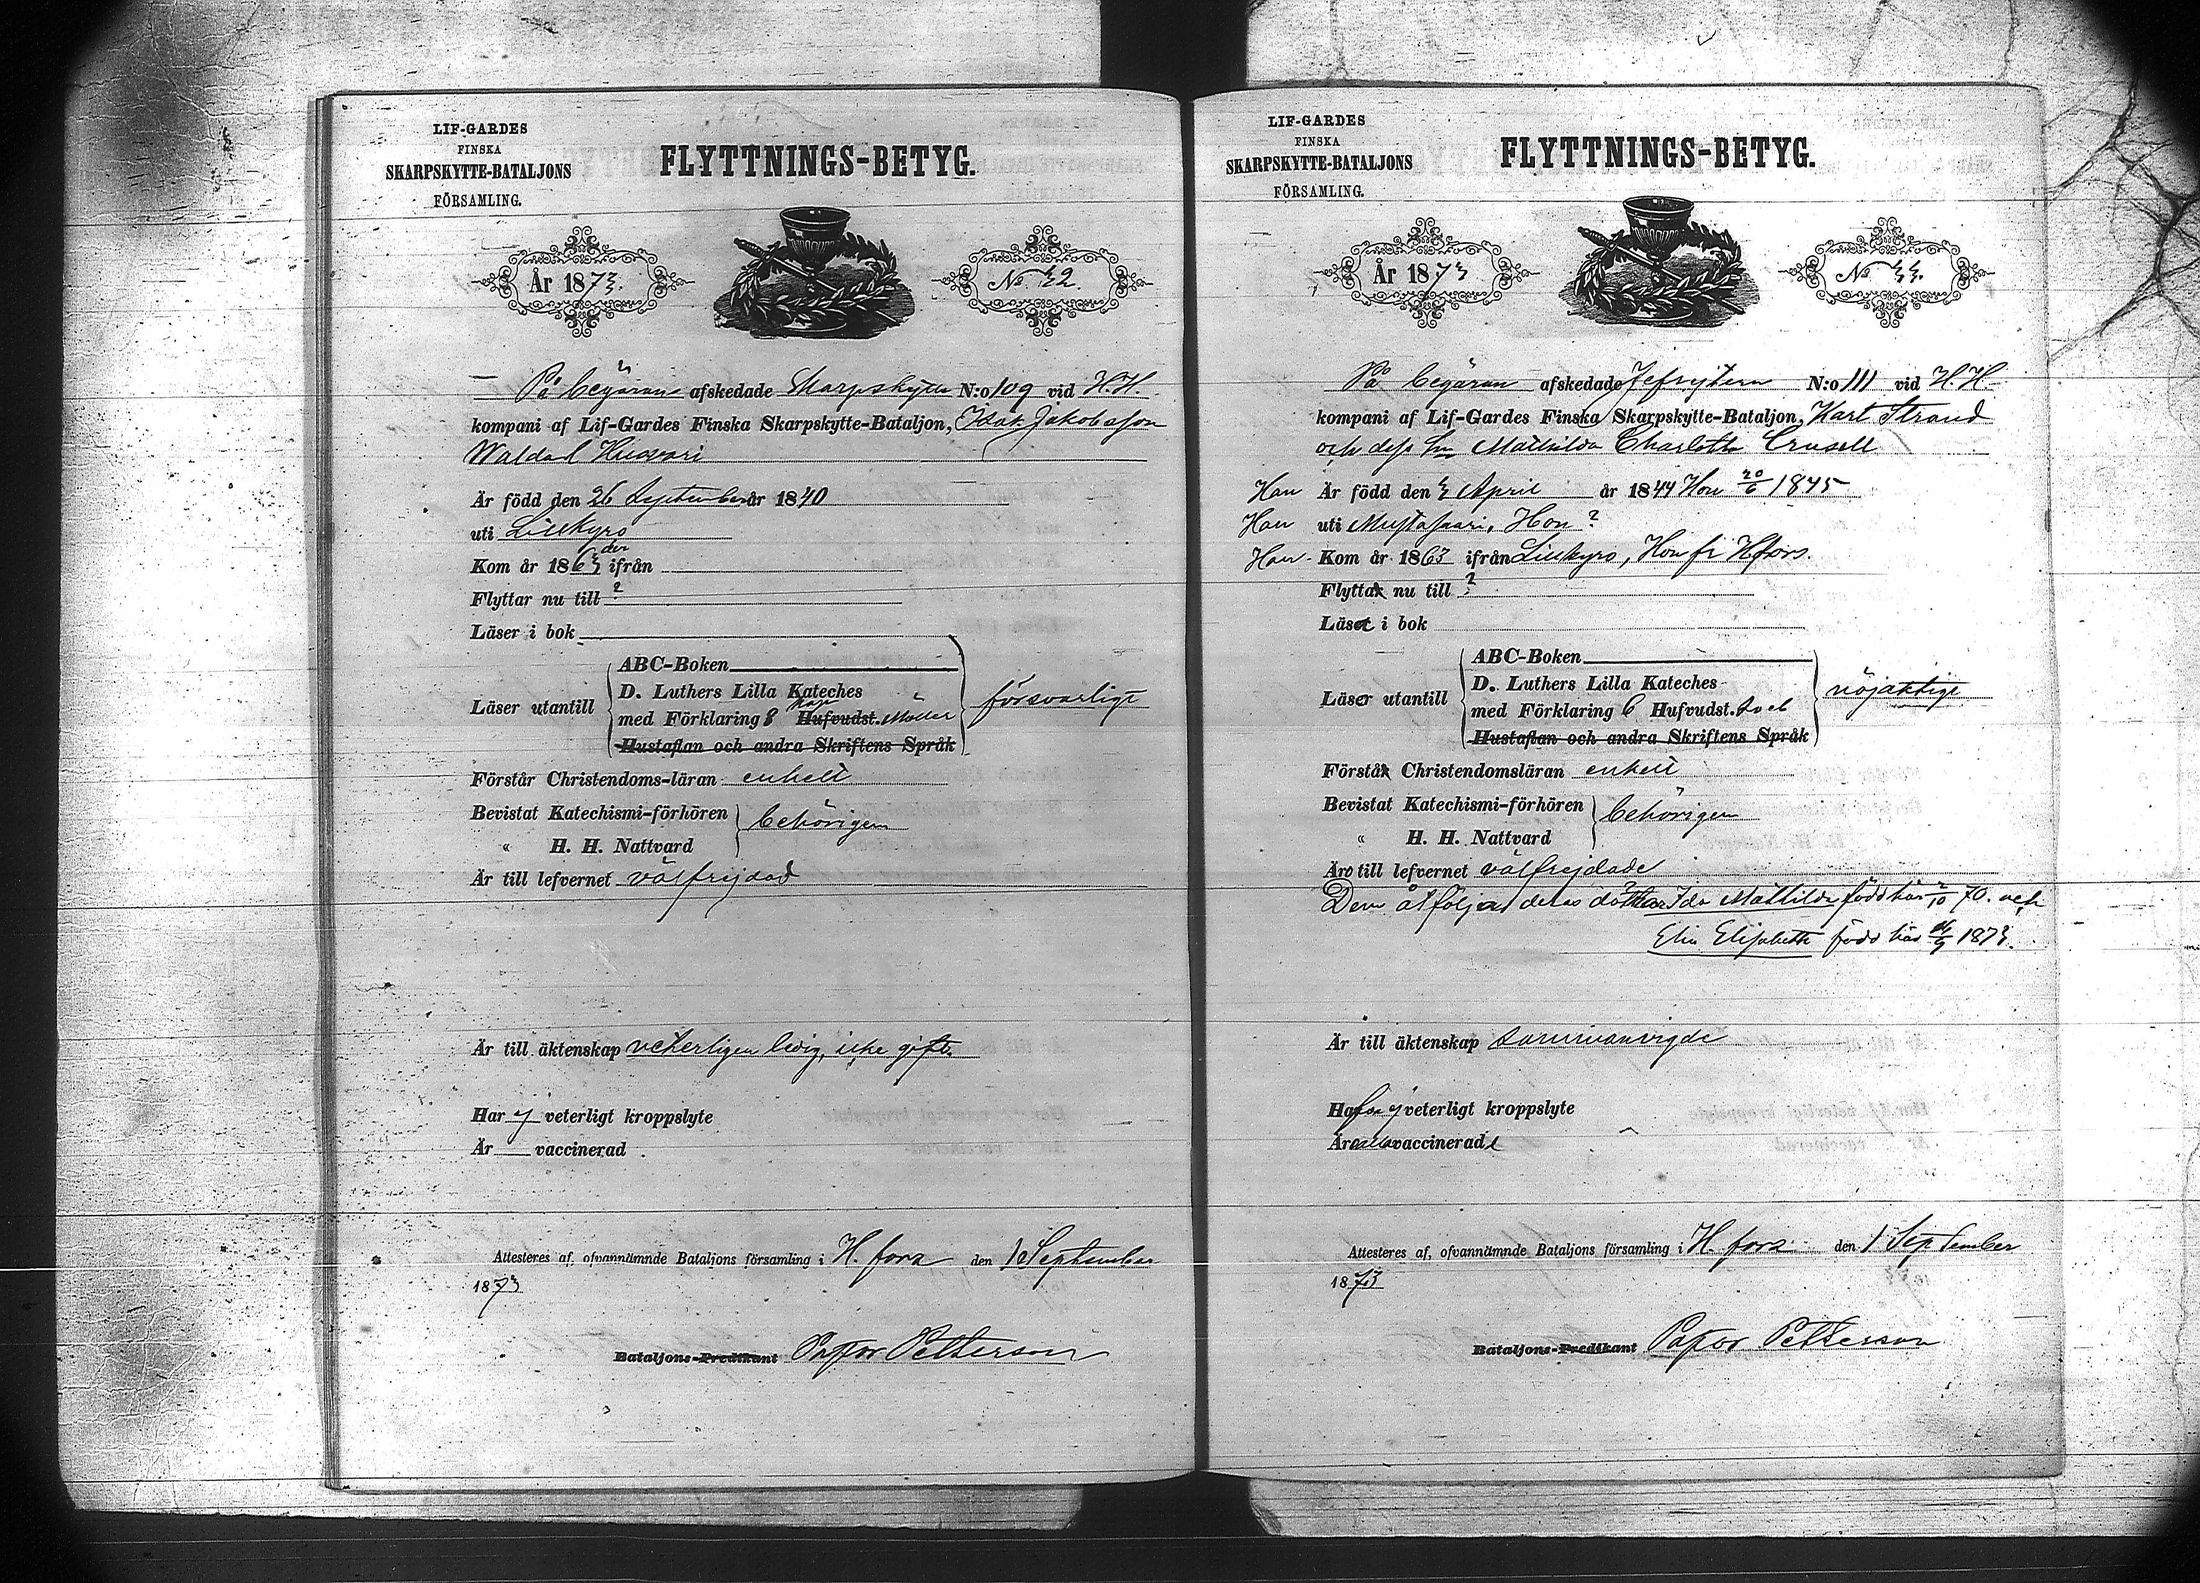 LIF-GARDES
FINSKA
SKARPSKYTTE-BATALJONS
FÖRSAMLING.
FLYTTNINGS-BETYG.
År 1873.
No 32.
På begäran afskedade Skarpskytten N:o 109 vid H.H.
kompani af Lif-Gardes Finska Skarpskytte-Bataljon, Isak Jakobsson
Waldal
Är född den 26 September år 1840
uti Lillkyro
Kom år 1863 der ifrån
Flyttar nu till ?
Läser i bok
ABC-Boken
D. Luthers Lilla Kateches
Läser utantill försvarligt
med Förklaring 8 Hufvudst. Möller
Hustaflan och andra Skriftens Språk
Förstår Christendoms-läran enkelt
Bevistat Katechismi-förhören behörigen
« H. H. Nattvard
Är till lefvernet välfrejdad
Är till äktenskap veterligen ledig, icke gift.
Har ej veterligt kroppslyte
Är vaccinerad
Attesteres af, ofvannämnde Bataljons församling i H.fors den 1 September
1873
Bataljons-Predikant Pastor Petterson
LIF-GARDES
FINSKA
SKARPSKYTTE-BATALJONS
FÖRSAMLING.
FLYTTNINGS-BETYG.
År 1873
No 33.
På begäran afskedade Gefrejtern N:o 111 vid H.H.
kompani af Lif-Gardes Finska Skarpskytte-Bataljon, Karl Strand
och dess hu Mathilda Charlotta Crusell
Han Är född den 3 April år 1844 Hon 20/6 1845
Han uti Mustasaari, Hon ?
Han Kom år 1863 ifrån Lillkyro, Hon fr Hfors.
Flytta nu till ?
Läsa i bok
ABC-Boken
D. Luthers Lilla Kateches
Läsa utantill nöjaktigt
med Förklaring 6 Hufvudst. Svel
Hustaflan och andra Skriftens Språk
Förstå Christendomsläran enkelt
Bevistat Katechismi-förhören behörigen
« H. H. Nattvard
Äro till lefvernet välfrejdade
Dem åtfölja deras döttrar Ida Mathilda född här 2/10 70. och
Elin Elisabeth född här 1873.
Är till äktenskap sammanvigde
Hafva ej veterligt kroppslyte
Är vaccinerade
Attesteres af, ofvannämnde Bataljons församling i H.fors den 1 September
1873
Bataljons-Predikant Pastor Petterson